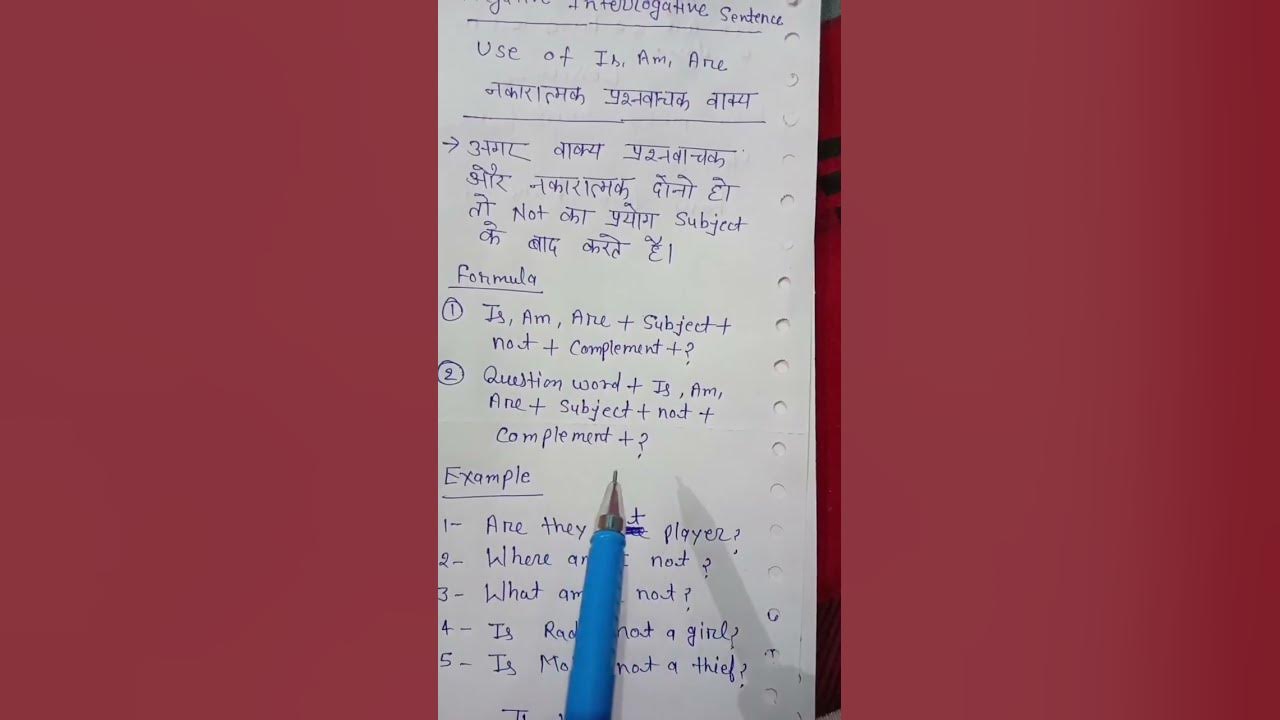 Interrogative Sentence
Use of Is, Am, Are
नकारात्मक प्रश्नवाचक वाक्य
→ अगर वाक्य प्रश्नवाचक
और नकारात्मक दोनो हो
तो Not का प्रयोग Subject
के बाद करते है।
Formula
① Is, Am, Are + Subject +
not + Complement + ?
② Question word + Is, Am,
Are + Subject + not +
Complement + ?
Example
1- Are they player?
2- Where not ?
3- What not?
4- Is not a girl?
5- Is not a thief?